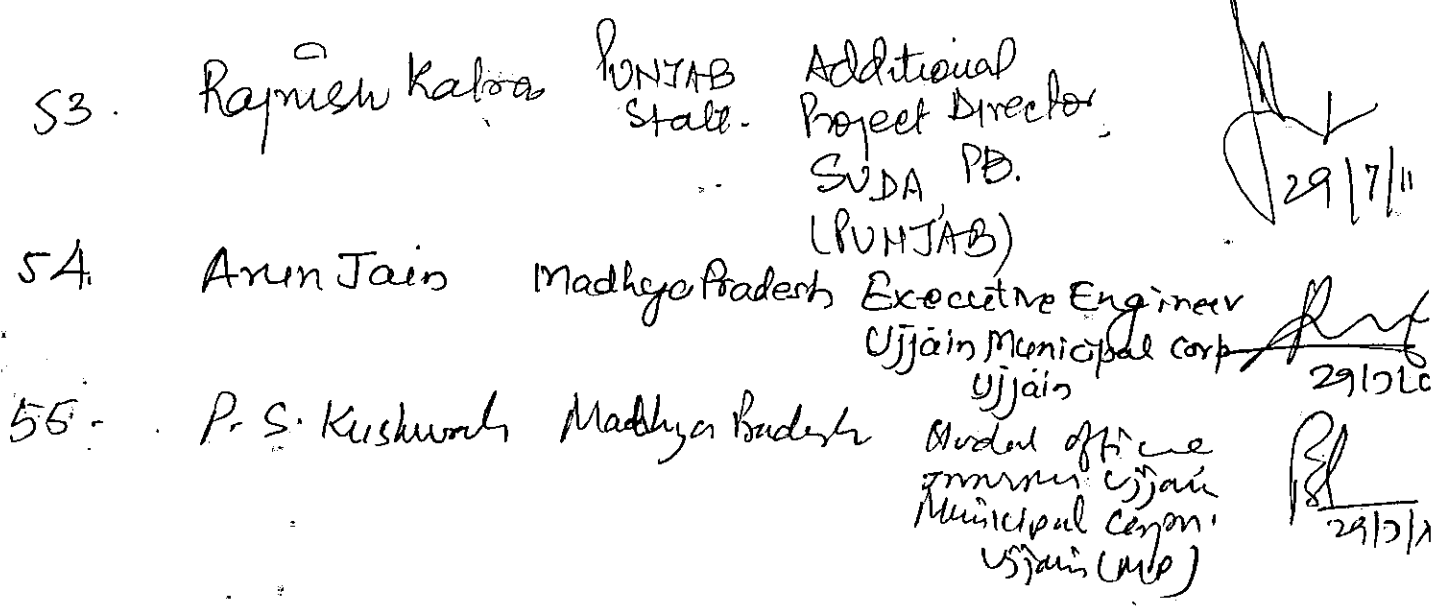 53. Rajnish Kalra PUNJAB State. Additional Project Director, SUDA, PB. (PUNJAB) 29/7/11
54. Arun Jain Madhya Pradesh Executive Engineer Ujjain Municipal Corp Ujjain
55. P. S. Kushwah Madhya Pradesh Nodal officer Ujjain Municipal Corpn. Ujjain (MP)